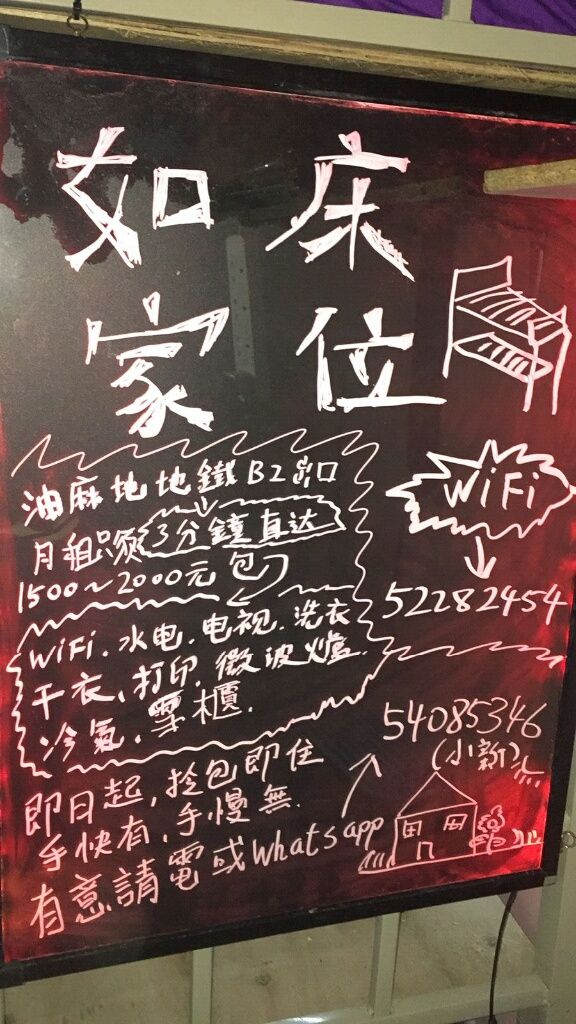 如 床
家 位
油麻地地鐵B2出口
月租只須3分鐘直达
1500~2000元包
WiFi
52282454
WiFi.水电.电视.洗衣
干衣、打印.微波爐.
冷氣、雪櫃.
54085346
(小新)
即日起,拎包即住
手快有,手慢無.
有意請電或Whatsapp